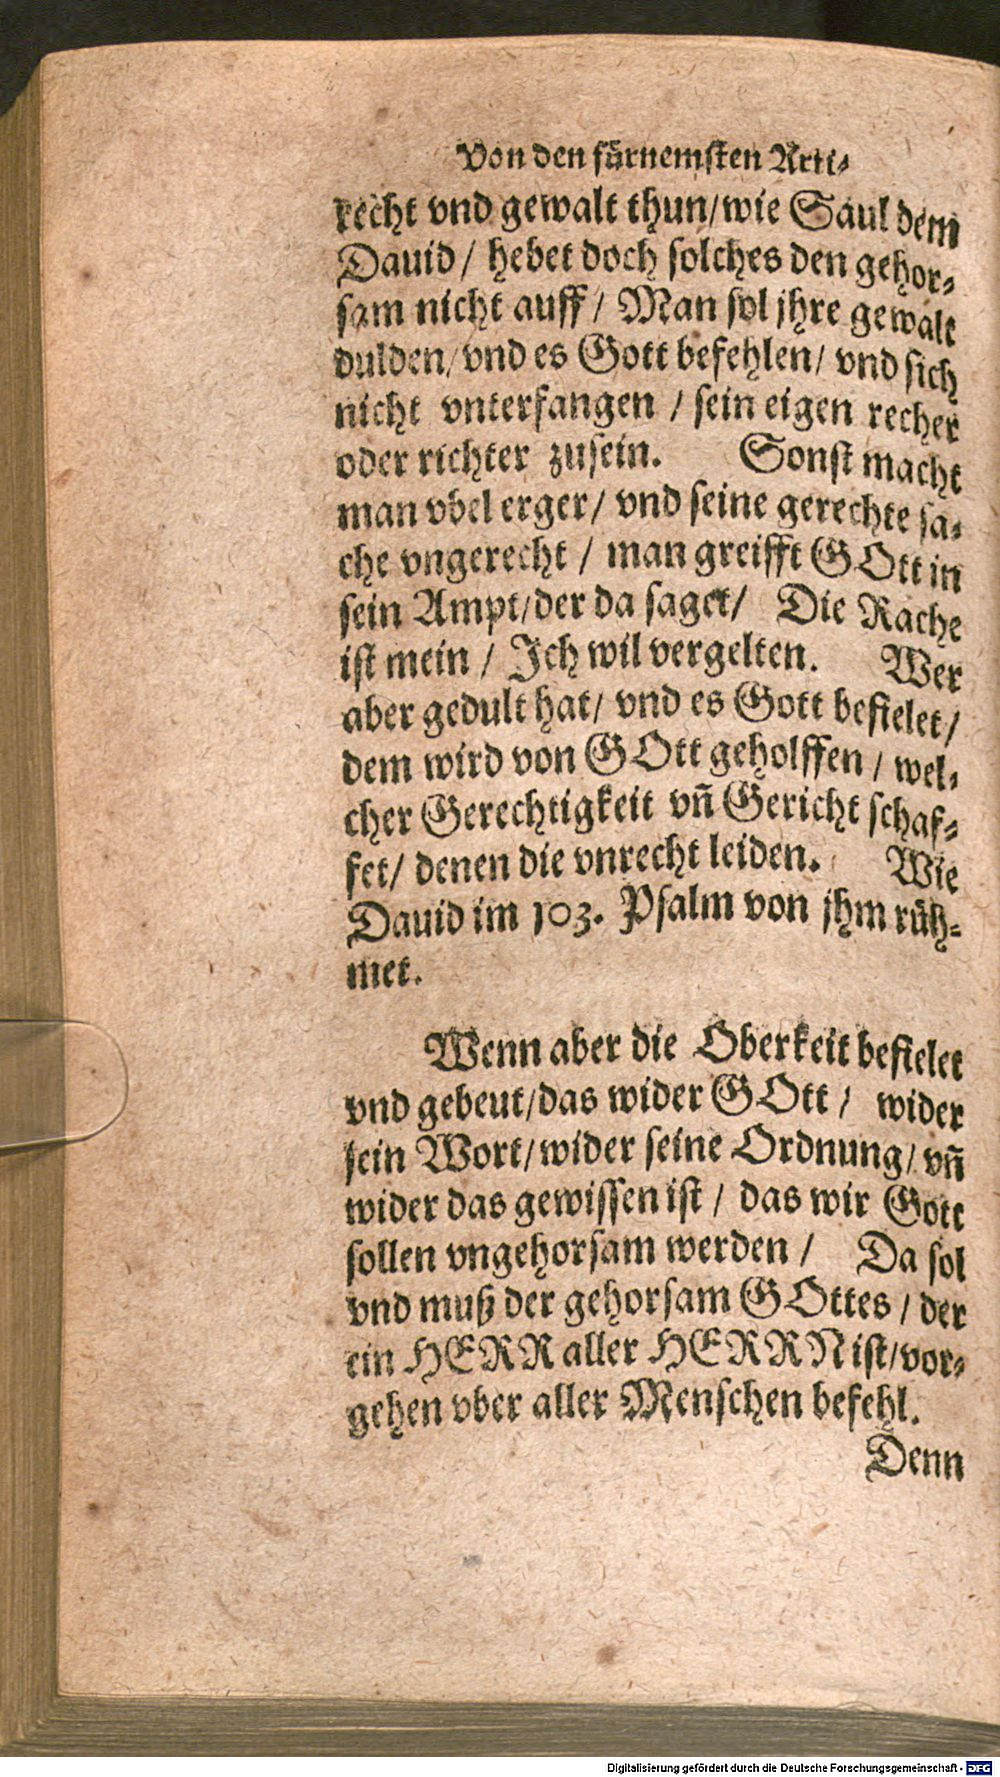 Von den fürnemsten Arti-
recht vnd gewalt thun/wie Saul dem
Dauid / hebet doch solches den gehor-
sam nicht auff / Man sol jhre gewalt
dulden/vnd es Gott befehlen/ vnd sich
nicht vnterfangen / sein eigen recher
oder richter zusein. Sonst macht
man vbel erger/ vnd seine gerechte sa-
che vngerecht / man greifft GOtt in
sein Ampt/der da saget/ Die Rache
ist mein / Ich wil vergelten. Wer
aber gedult hat/ vnd es Gott befielet/
dem wird von GOtt geholffen / wel-
cher Gerechtigkeit vn̄ Gericht schaf-
fet/ denen die vnrecht leiden. Wie
Dauid im 103. Psalm von jhm rüh-
met.
Wenn aber die Oberkeit befielet
vnd gebeut/das wider GOtt / wider
sein Wort/wider seine Ordnung/ vn̄
wider das gewissen ist / das wir Gott
sollen vngehorsam werden / Da sol
vnd muß der gehorsam GOttes / der
ein HERR aller HERRN ist/vor-
gehen vber aller Menschen befehl.
Denn
Digitalisierung gefördert durch die Deutsche Forschungsgemeinschaft - DFG